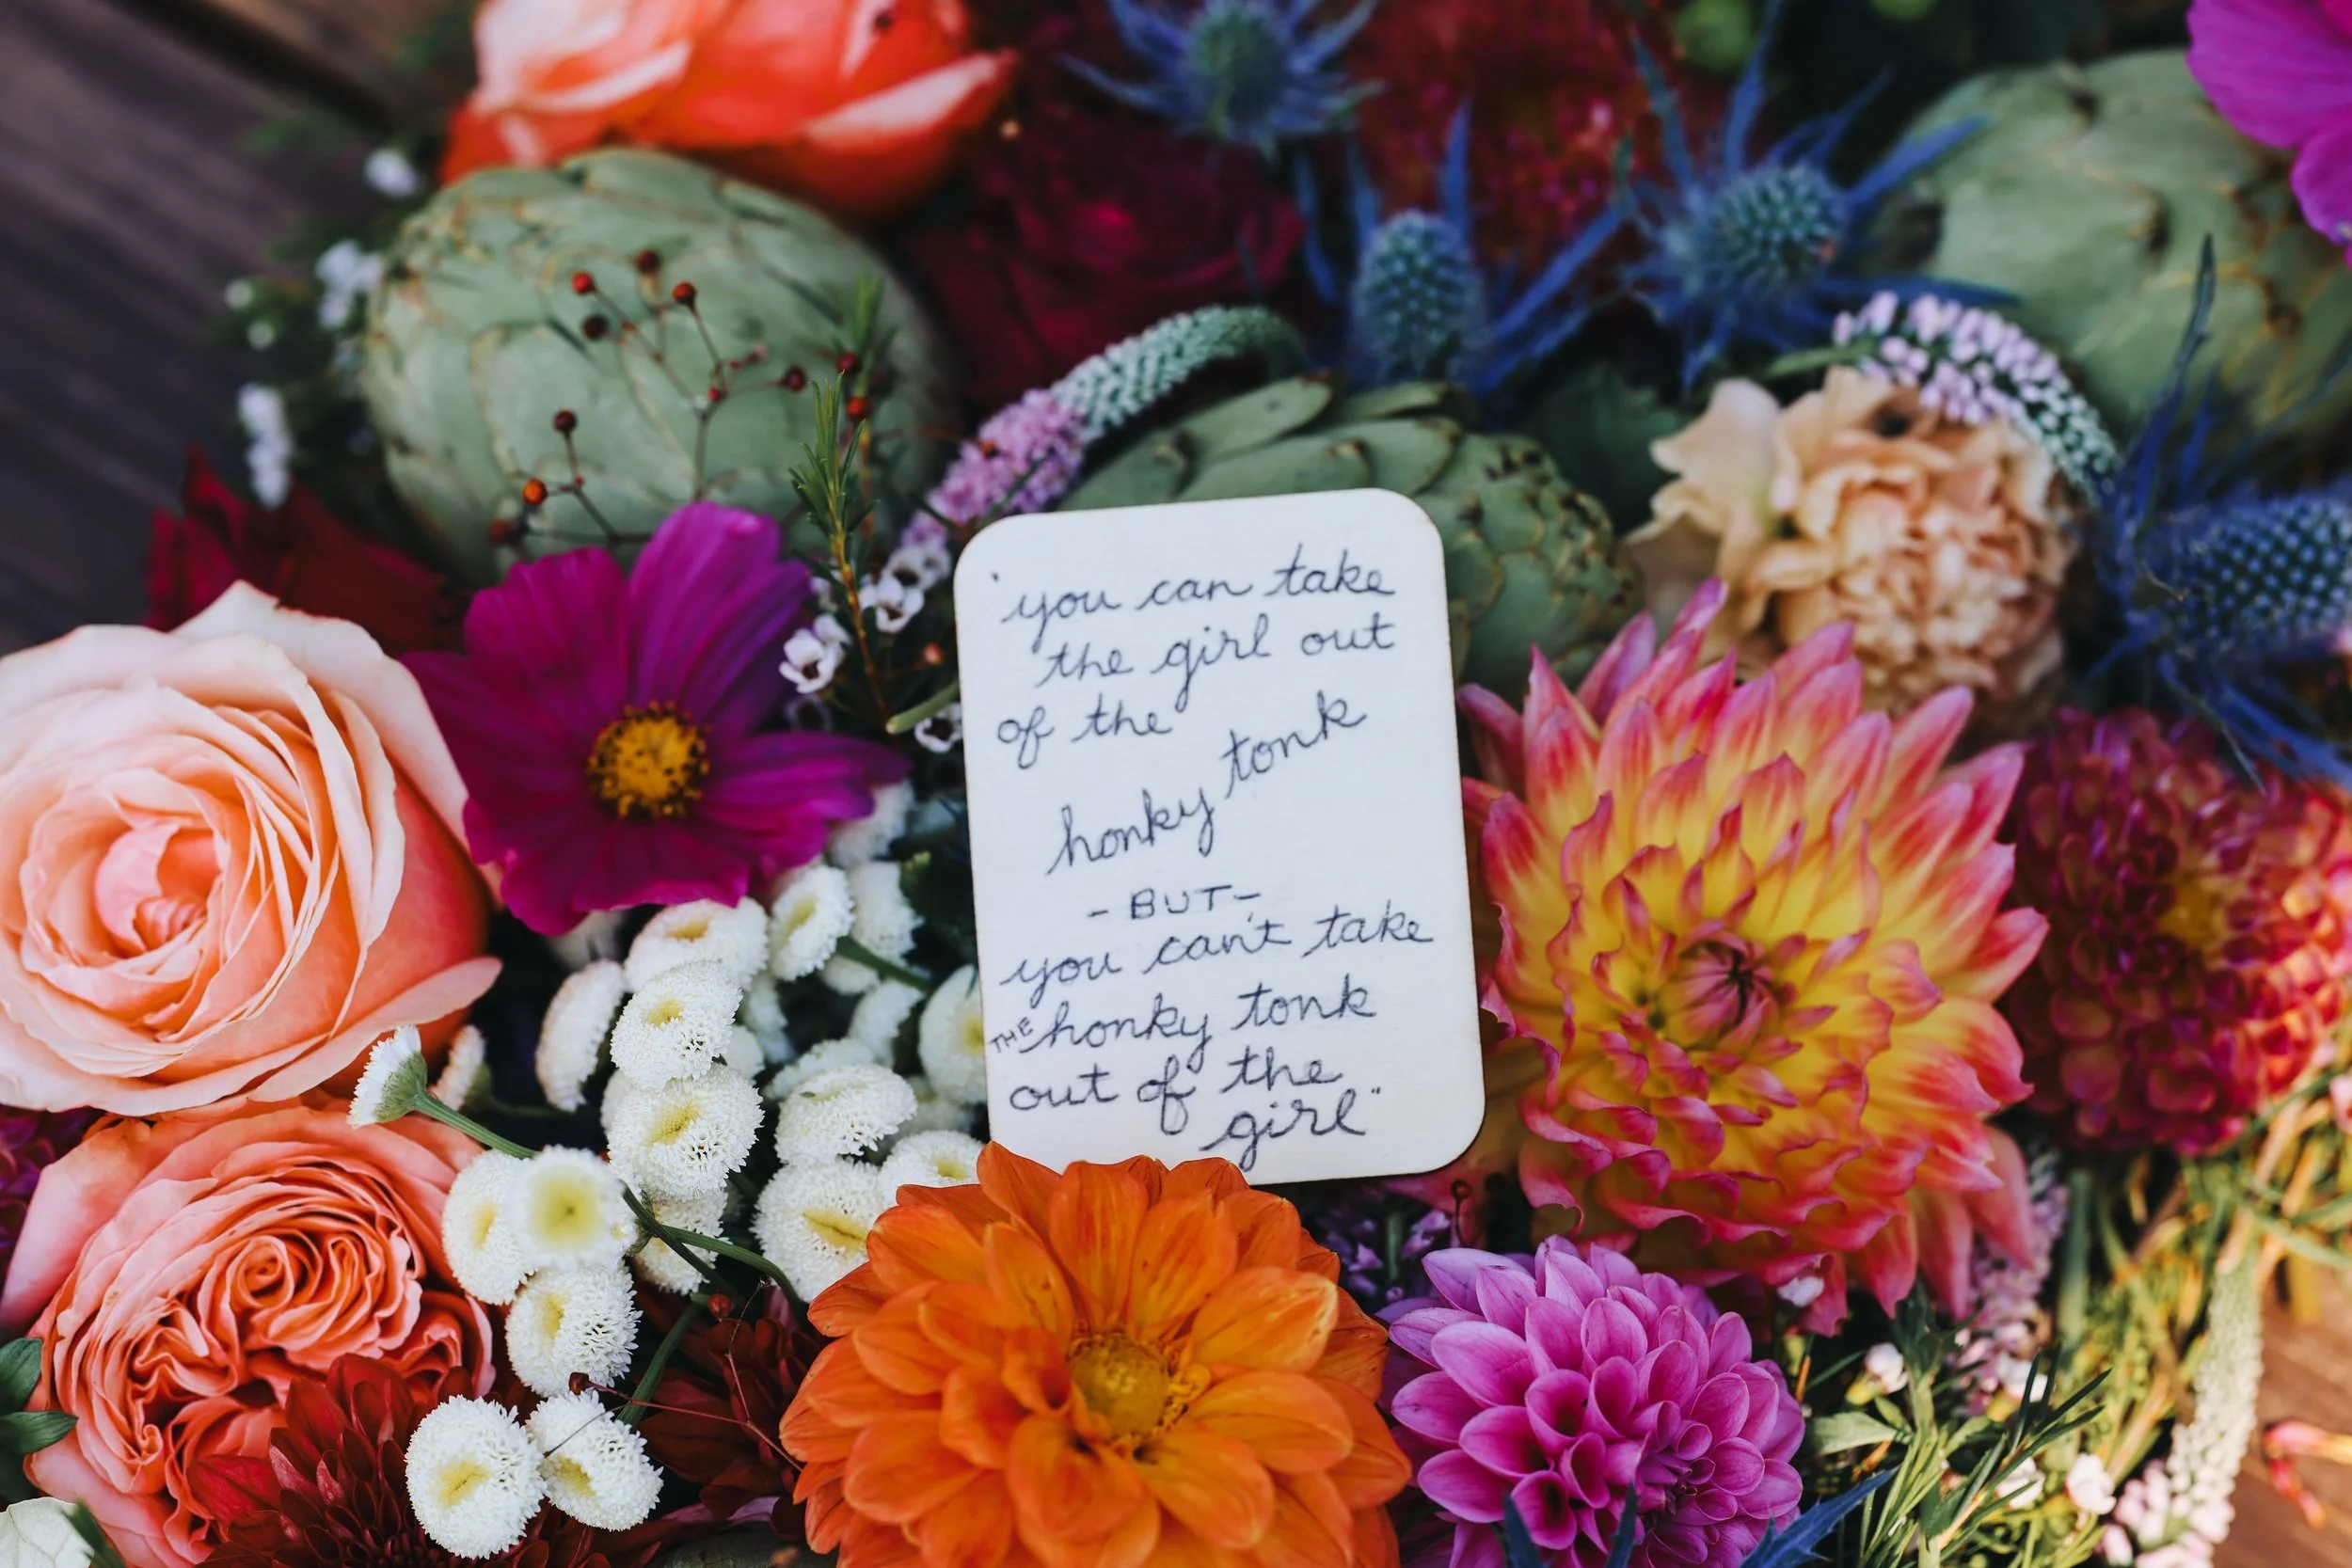 "you can take
the girl out
of the
honky tonk
- BUT -
you can't take
THE honky tonk
out of the
girl"